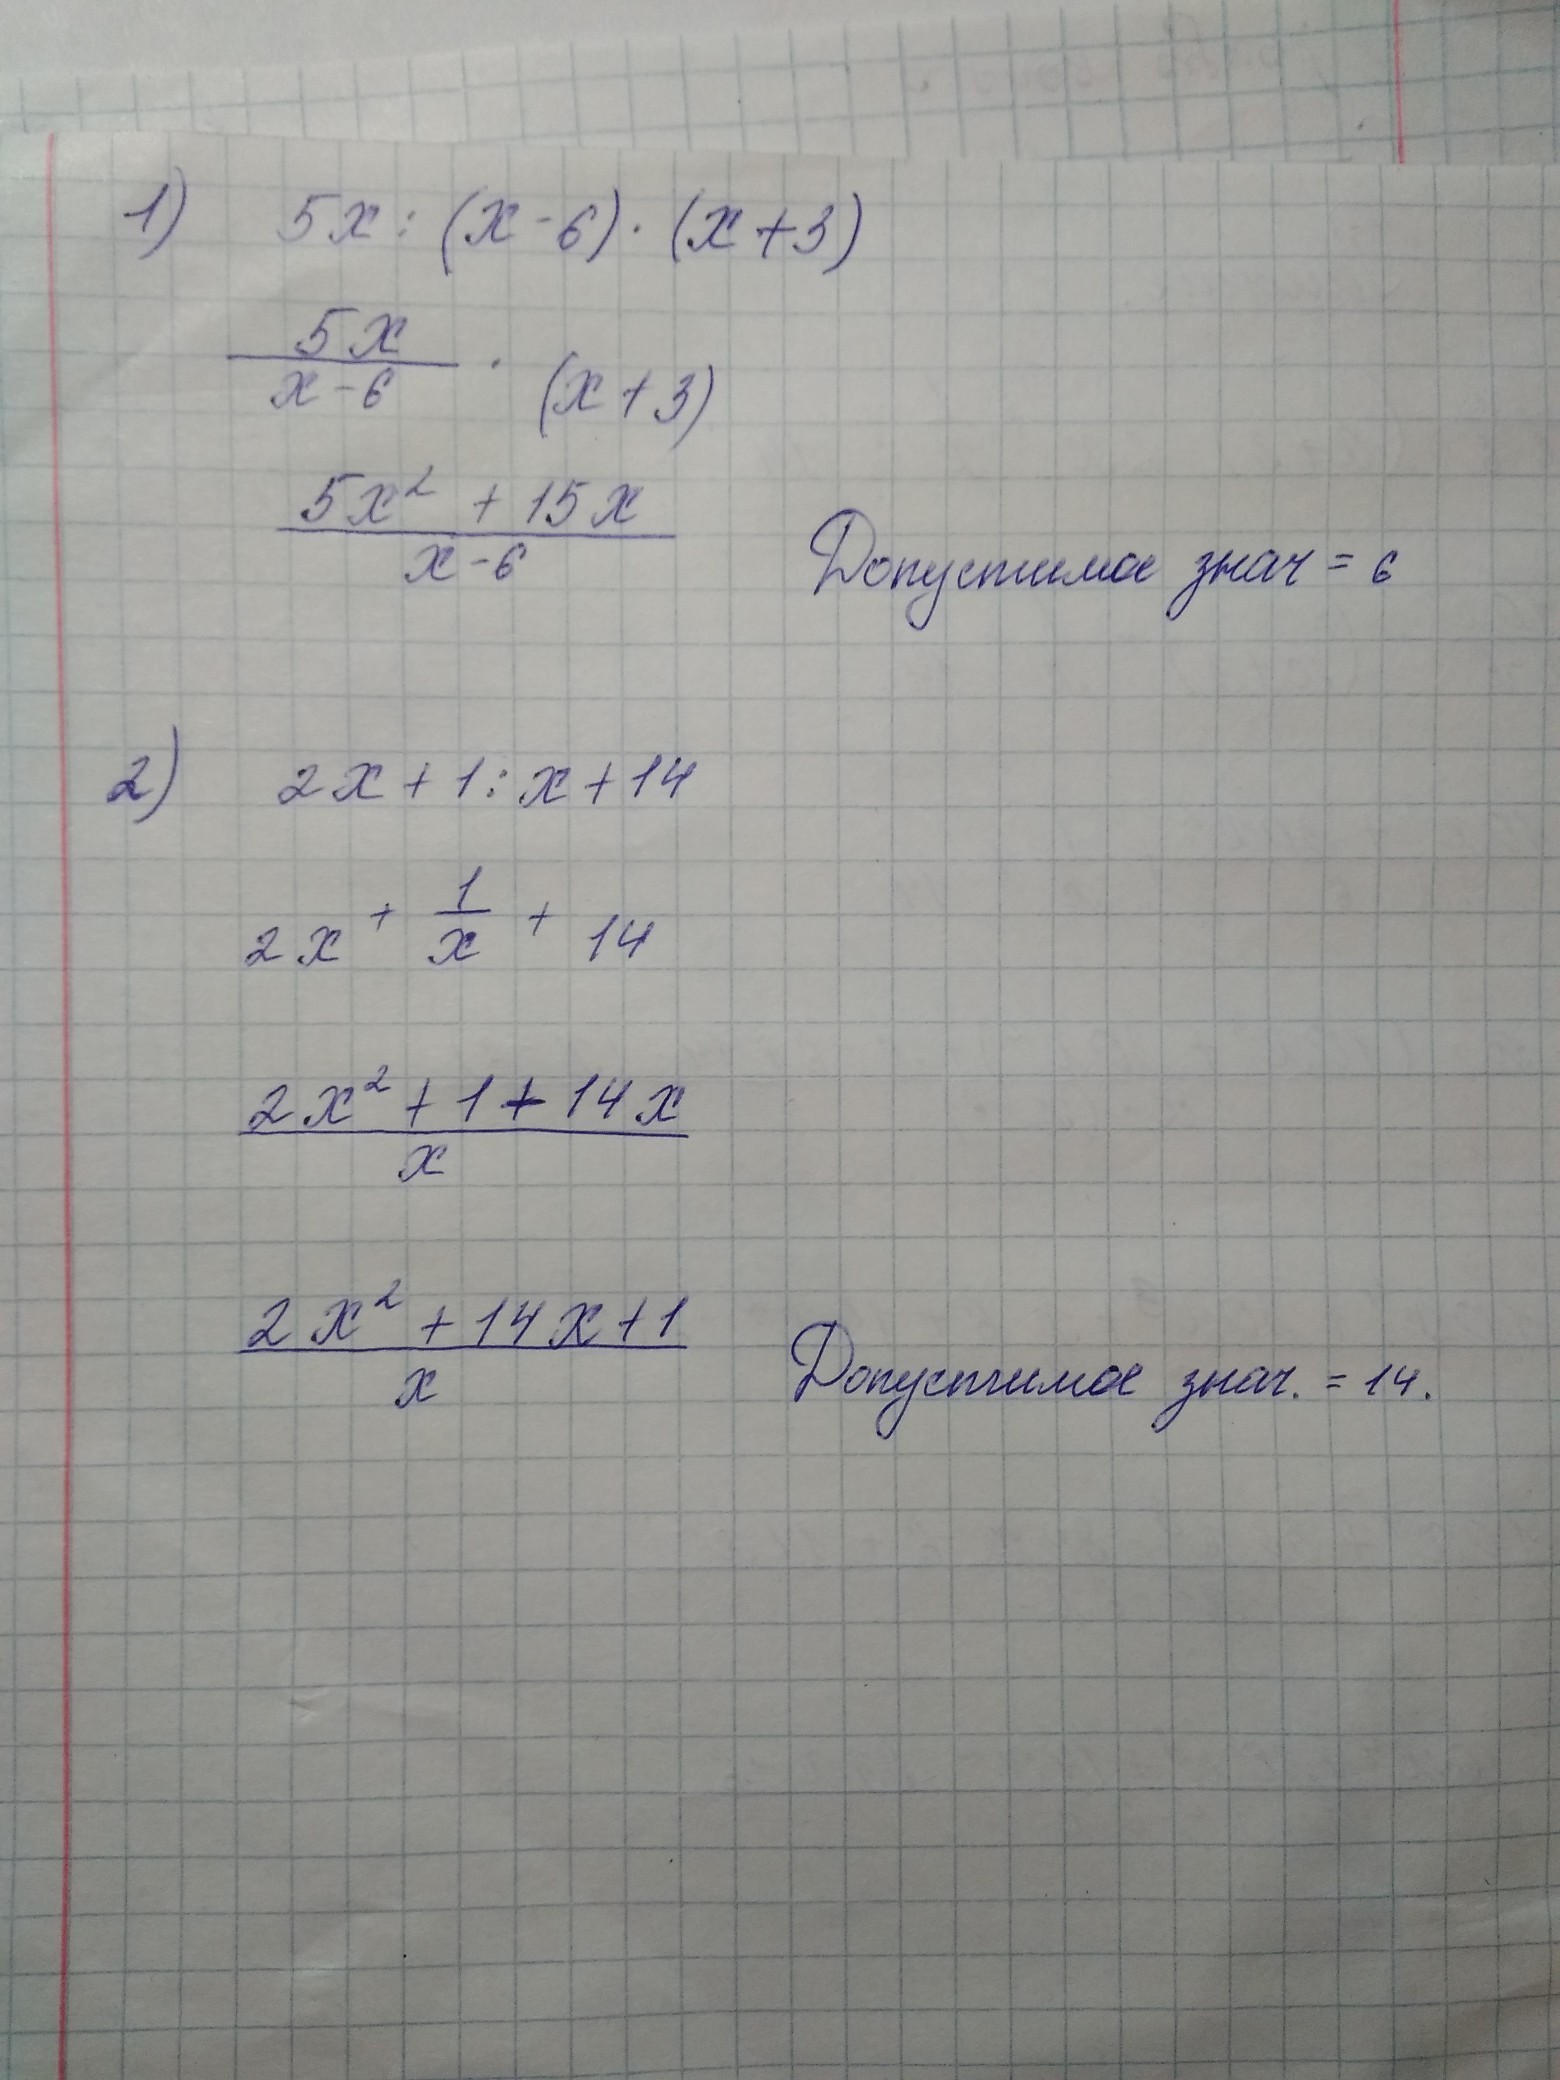 1) 5x : (x - 6) · (x + 3)
5x
x - 6
· (x + 3)
5x² + 15x
x - 6
Допустимое знач = 6
2) 2x + 1 : x + 14
2x + 1/x + 14
2x² + 1 + 14x
x
2x² + 14x + 1
x
Допустимое знач. = 14.